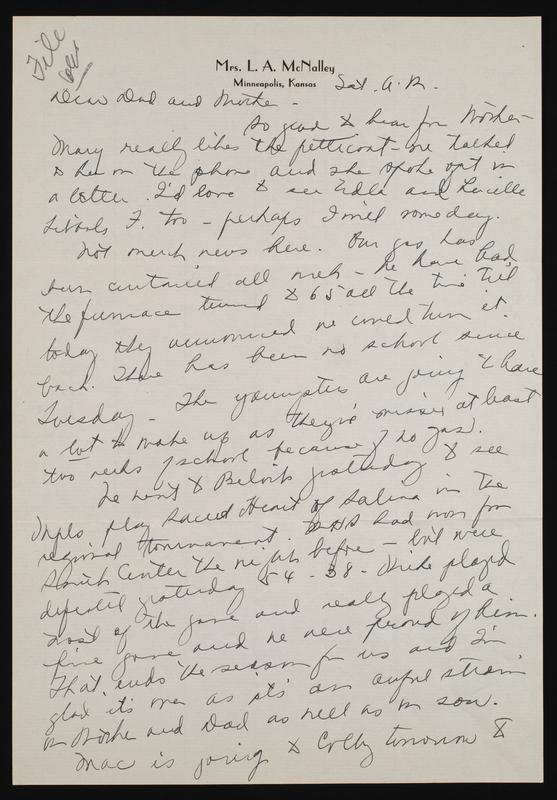 File
Mrs. L. A. McNalley
Minneapolis, Kansas
Sat. A.M.
Dear Dad and Mother -
So good to hear from Mother -
Mary really likes the petticoat - we talked
to her on the phone and she spoke of it in
a letter. I'd love to see Edla and Lucille
F. too - perhaps I will someday.
Not much news here. Our gas has
been curtailed all week - we have had
the furnace turned to 65 all the time till
today they announced we could turn it
back. There has been no school since
Tuesday - The youngsters are going to have
a lot to make up as they've missed at least
two weeks of school because of no gas.
We went to Beloit yesterday to see
Mpls play Sacred Heart of Salina in the
regional tournament. MHS had won from
Smith Center the night before - but were
defeated yesterday 54 - 38 - played
most of the game and really played a
fine game and we were proud of him.
That ends the season for us and I'm
glad it's over as it's an awful strain
on Mother and Dad as well as on son.
Mac is going to Colby tomorrow to